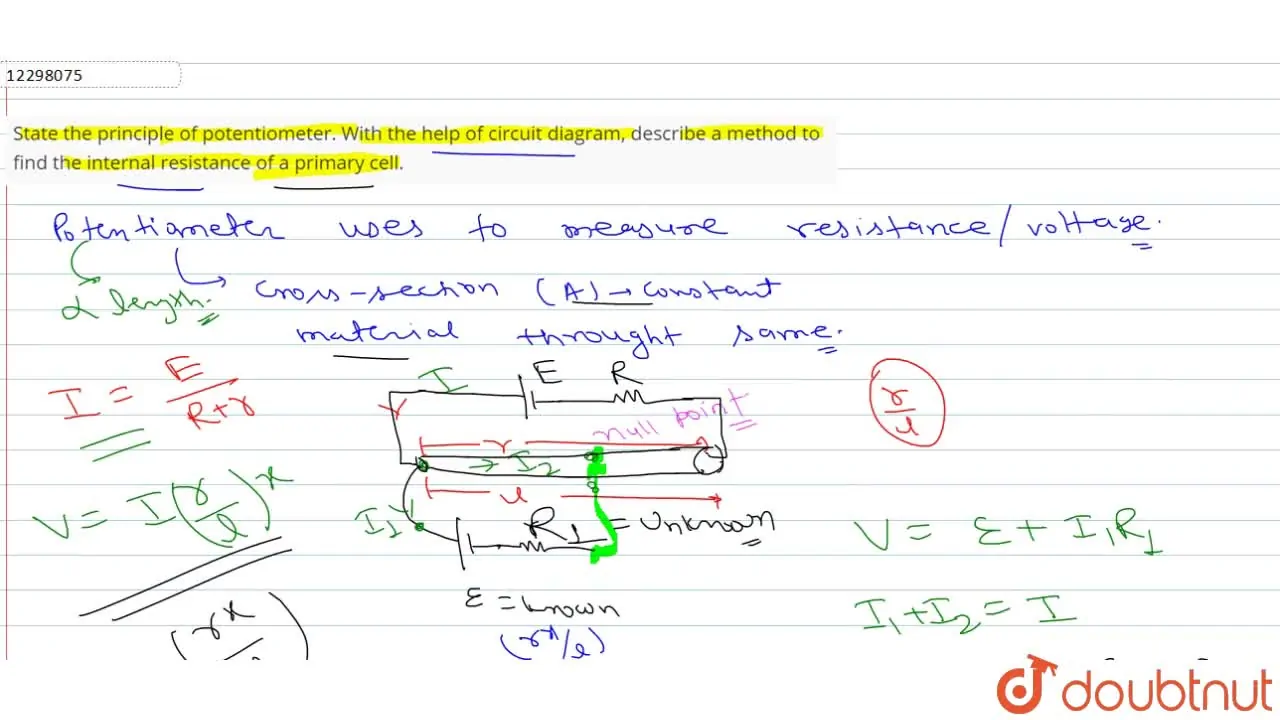 12298075
State the principle of potentiometer. With the help of circuit diagram, describe a method to
find the internal resistance of a primary cell.
Potentiometer uses to measure resistance/voltage.
α length. cross-section (A) → constant
material throught same.
I = E/(R+r)
I E R
r/l
null point
r
→ I2
l
V = I(r/l)x
I1 R1 = unknown
V = ε + I1R1
ε = known
I1 + I2 = I
(rx/l)
(rx
doubtnut